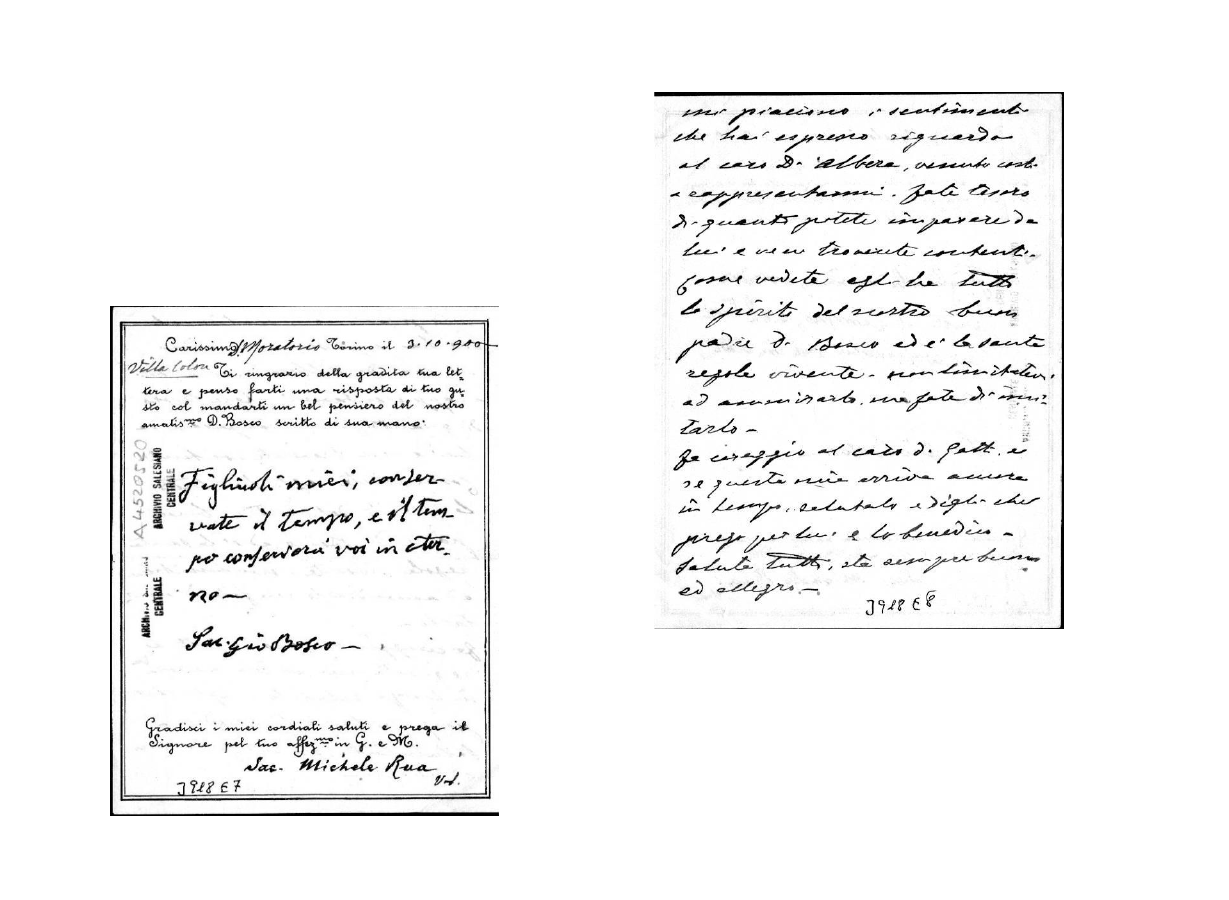 Carissimo D. Moratorio Torino il 3-10-900
Villa Colon
Ti ringrazio della gradita tua let-
tera e penso farti una risposta di tuo gu-
sto col mandarti un bel pensiero del nostro
amatis.mo D. Bosco scritto di sua mano:
Figliuoli miei, conser-
vate il tempo, e il tem-
po conserverà voi in eter-
no —
Sac. Gio Bosco —
Gradisci i miei cordiali saluti e prega il
Signore pel tuo affez.mo in G. e M.
Sac. Michele Rua
J928 E7
A4520520
ARCHIVIO SALESIANO
CENTRALE
ARCHIVIO
CENTRALE
mi piaciono i sentimenti
che hai espresso riguardo
al caro D. Albera, venuto costì
a rappresentarmi. Fate tesoro
di quanto potete imparare da
lui e ve ne troverete contenti.
Come vedete egli ha tutto
lo spirito del nostro buon
padre D. Bosco ed è la santa
regola vivente - non limitatevi
ad ammirarlo, ma fate di imi-
tarlo -
Fa coraggio al caro D. Gatti, e
se questa mia arriva ancora
in tempo, salutalo e digli che
prego per lui e lo benedico -
Saluta tutti, sta sempre buono
ed allegro. -
J928 E8